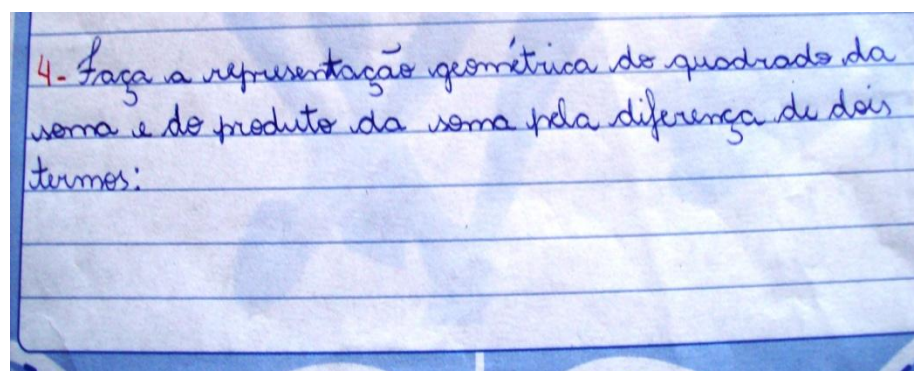 4- Faça a representação geométrica do quadrado da
soma e do produto da soma pela diferença de dois
termos: